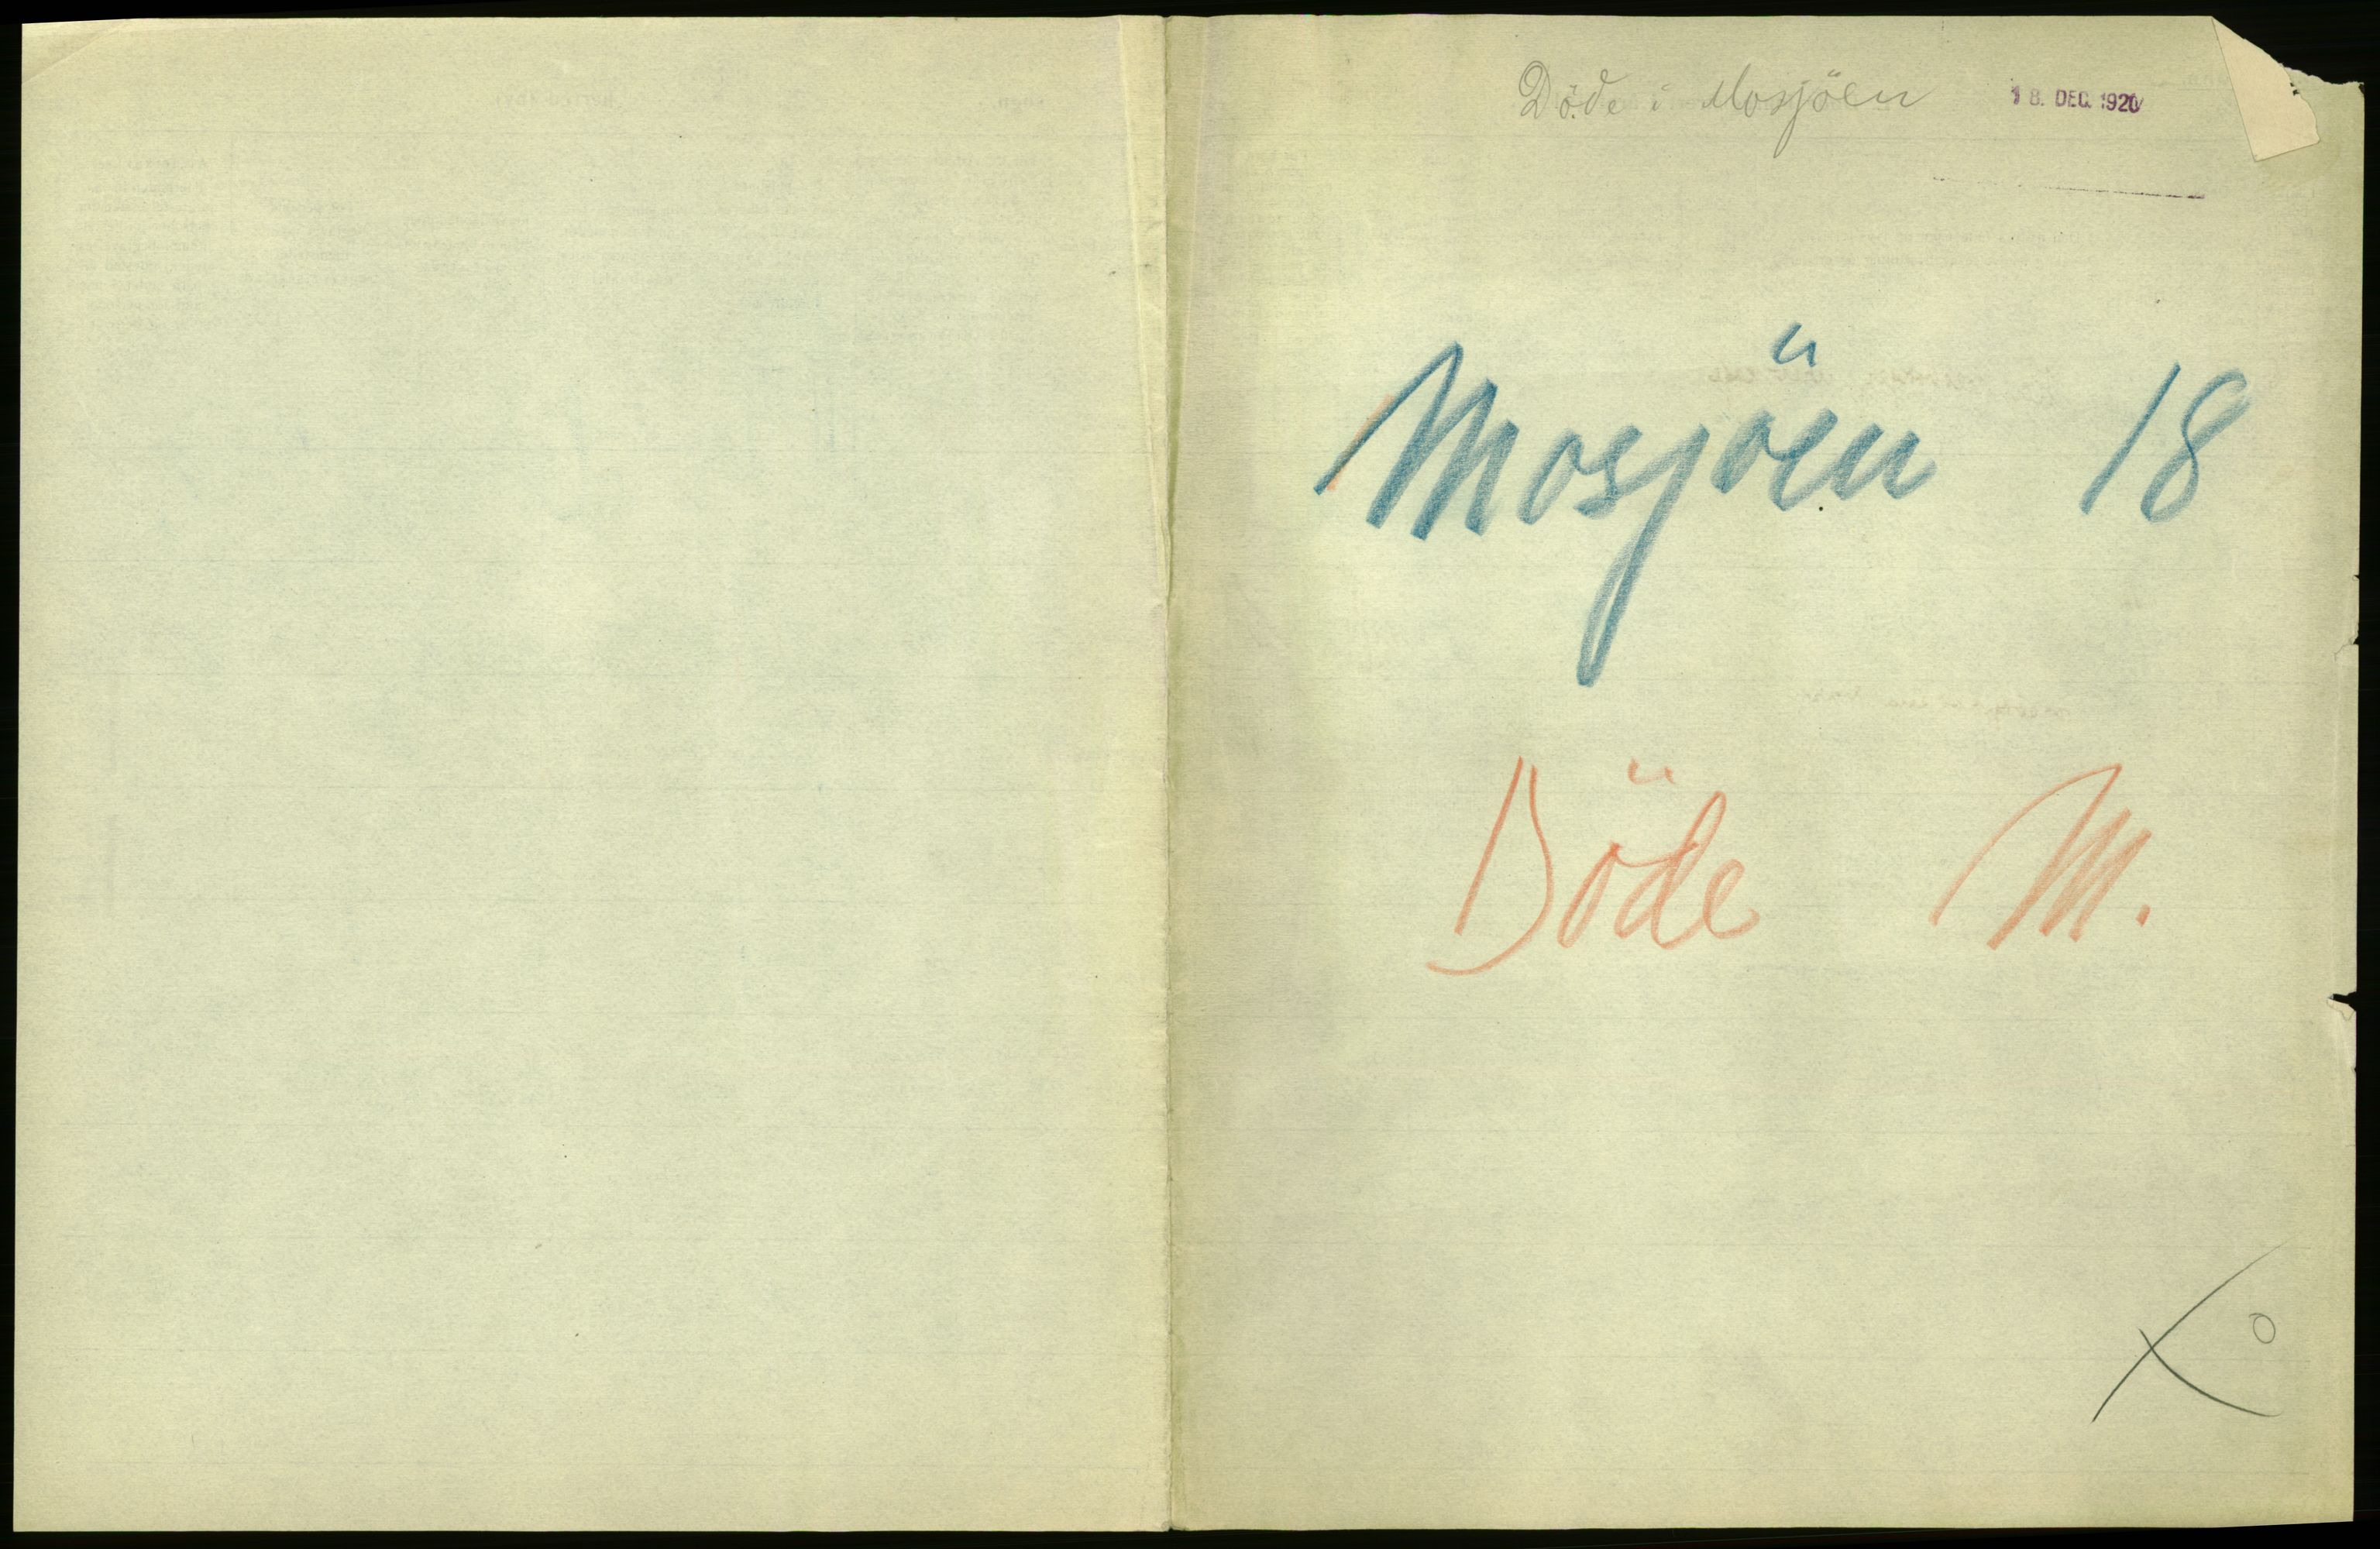 Döde i Mosjöen
18. DEC. 1920
Mosjöen 18
Döde M.